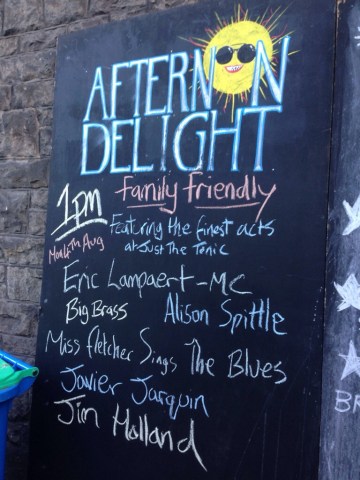 AFTERNOON
DELIGHT
1pm Family Friendly
Mon 4th Aug Featuring the finest acts
at Just The Tonic
Eric Lampaert - MC
Big Brass Alison Spittle
Miss Fletcher Sings The Blues
Javier Jarquin
Jim Holland
BR